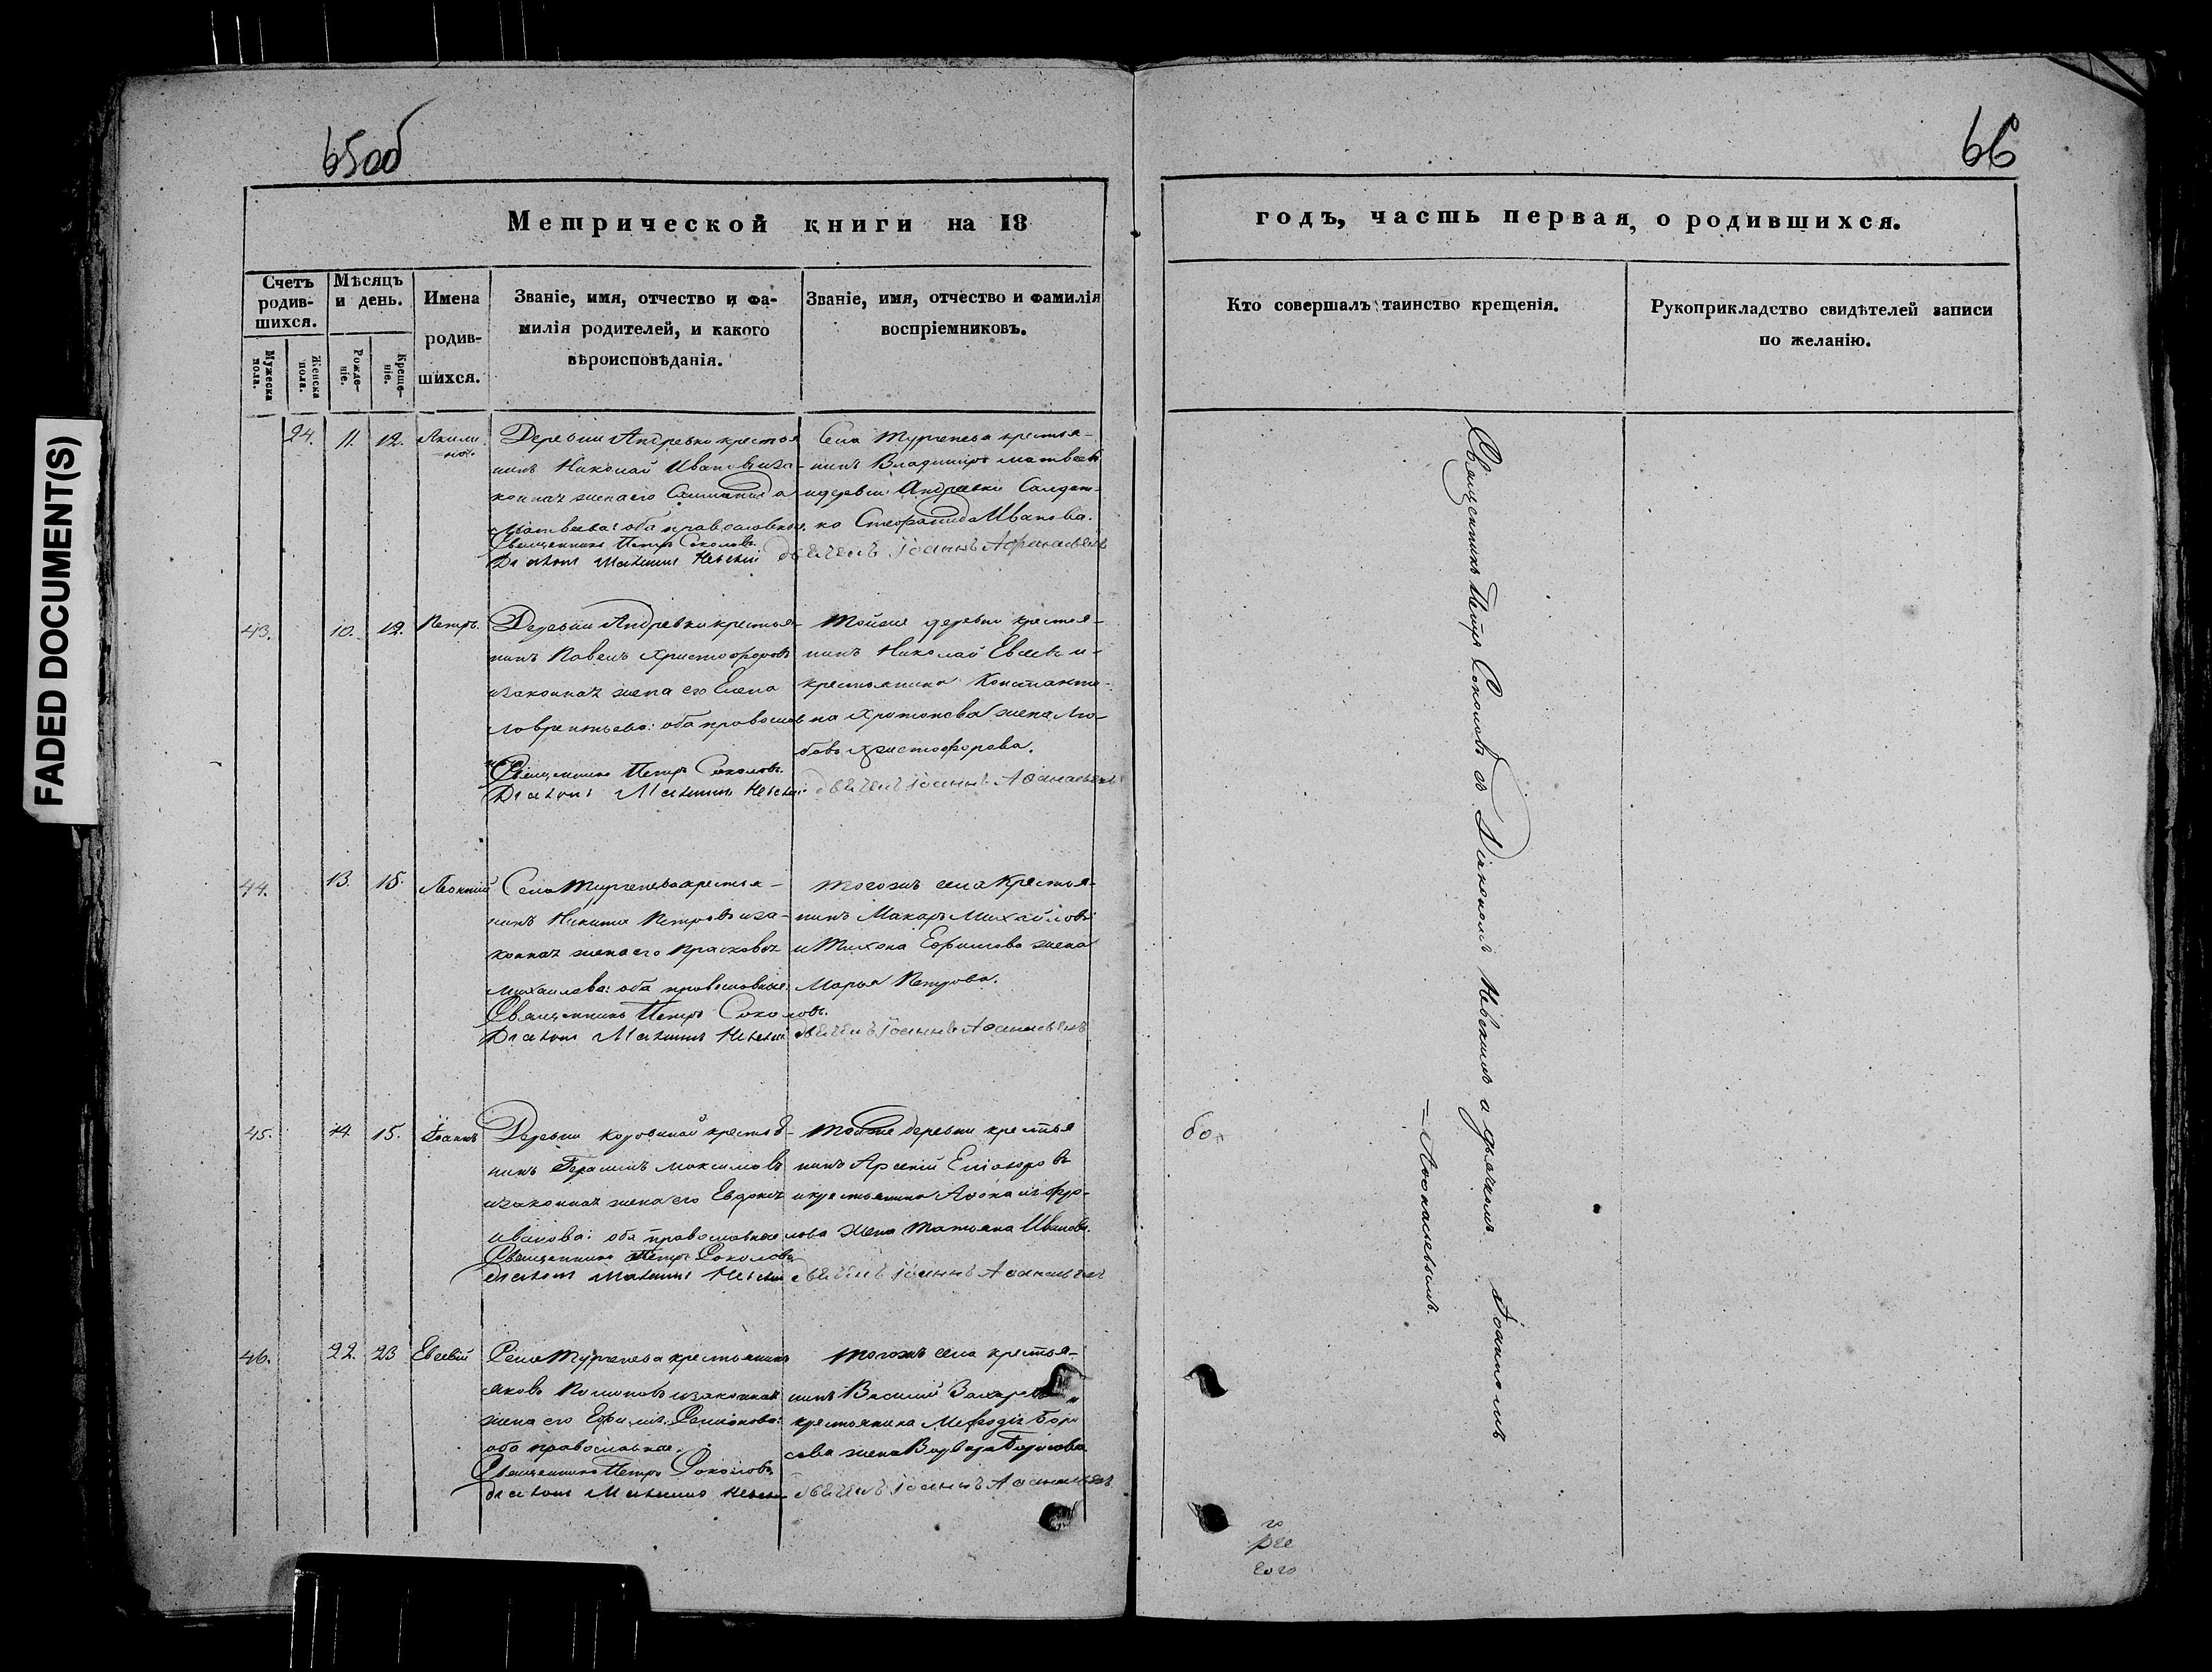 65об
66
Метрической книги на 18
годъ, часть первая, о родившихся.
Счетъ родив-шихся.
Мужеска пола.
Женска пола.
Мѣсяцъ и день.
Рожде-ніе.
Креще-ніе.
Имена родив-шихся.
Званіе, имя, отчество и фа-
милія родителей, и какого
вѣроисповѣданія.
Званіе, имя, отчество и фамилія
воспріемниковъ.
Кто совершалъ таинство крещенія.
Рукоприкладство свидѣтелей записи
по желанію.
24. 11. 12. Акили-
на.
Деревни Андревки крестья
нинъ Николай Ивановъ иза-
конная жена его
Матвѣева: оба православные
Священникъ Петръ Соколовъ
Діаконъ Невскій
Села Тургенева крестья-
нинъ Владимиръ Матвеевъ
и деревни Андреевки Салдат-
ка Стефанида Иванова.
дьячекъ Іоаннъ Афанасьевъ
43. 10. 12. Петръ.
Деревни Андревки крестья-
нинъ Павелъ Христофоровъ
изаконная жена его Елена
Лаврентьева: оба православ
ные
Священникъ Петръ Соколовъ
Діаконъ Невскій
Тойже деревни крестья-
нинъ Николай Евсевъ и-
крестьянина Константи-
на жена Лю-
бовь Христофорова.
дьячекъ Іоаннъ Аѳанасьевъ
44. 13. 15. Леонтий
Села Тургенева крестья-
нинъ Никита Петровъ иза-
конная жена его Прасковья
Михаилова: оба православные:
Священникъ Петръ Соколовъ.
Діаконъ Невскій
Тогожъ села крестья-
нинъ Макаръ Михайловъ
и Тихона Ефимова жена
Марья Петрова.
дьячекъ Іоаннъ Аѳанасьевъ
45. 14. 15. Іоаннъ
Деревни крестья-
нинъ Герасимъ Максимовъ
изаконная жена его Евдокія
Иванова: оба православные
Священникъ Петръ Соколовъ
діаконъ Невскій
Тойже деревни крестья
нинъ Арсеній
и крестьянина
лова жена Татьяна Иванова.
дьячекъ Іоаннъ Аѳанасьевъ
46. 22. 23 Евсевій
Села Тургенева крестьянинъ
Яковъ изаконная
жена его Ефимія Семионова:
оба православные.
Священникъ Петръ Соколовъ
діаконъ Невскій
Тогожъ села крестья-
нинъ Василий и
крестьянина Меѳодія Бори
сова жена Борисова
дьячекъ Іоаннъ Аѳанасьевъ
Священникъ Петръ Соколовъ съ Діакономъ Невскимъ и дьячкомъ Іоанномъ
= Аѳонасьевымъ.
FADED DOCUMENT(S)